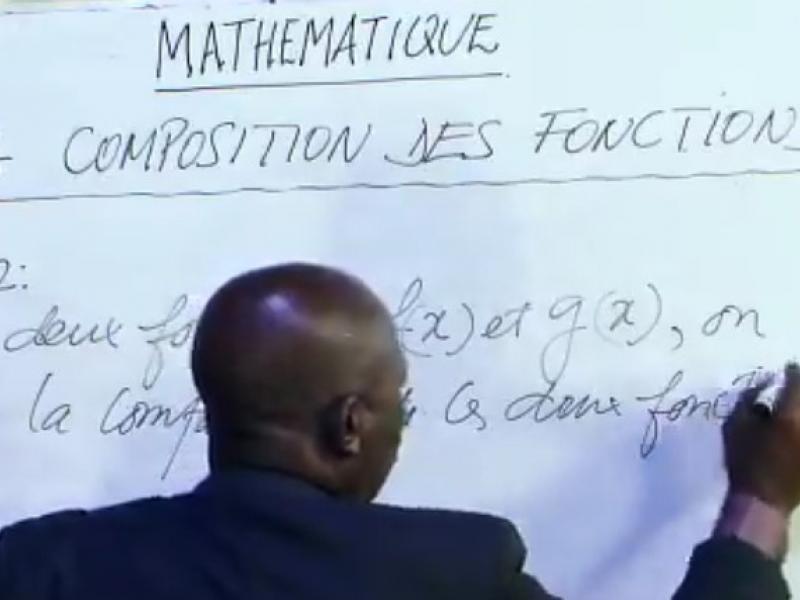 MATHEMATIQUE
- COMPOSITION DES FONCTIONS
2:
deux f(x) et g(x), on
la ces deux